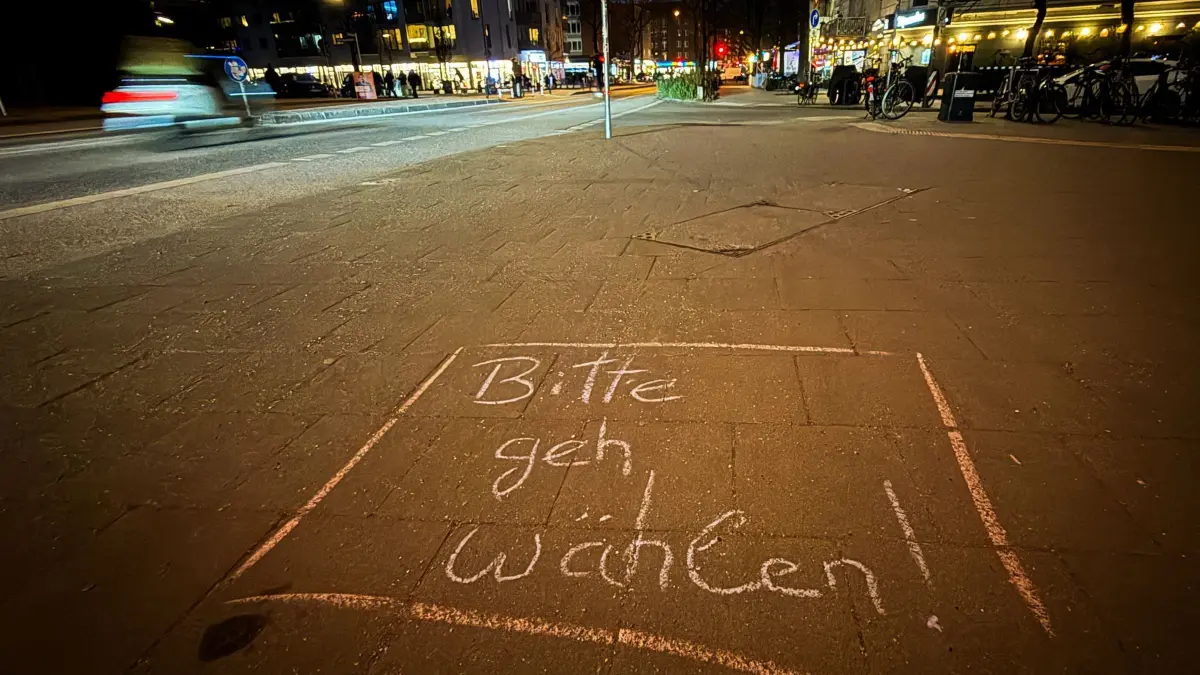 Bitte
geh
wählen!